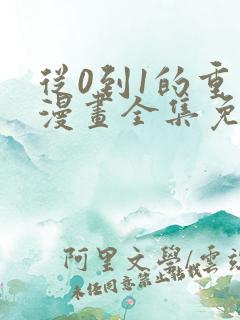 從0到1的重
漫畫全集免
阿里文學/雲
未经同意禁止转载